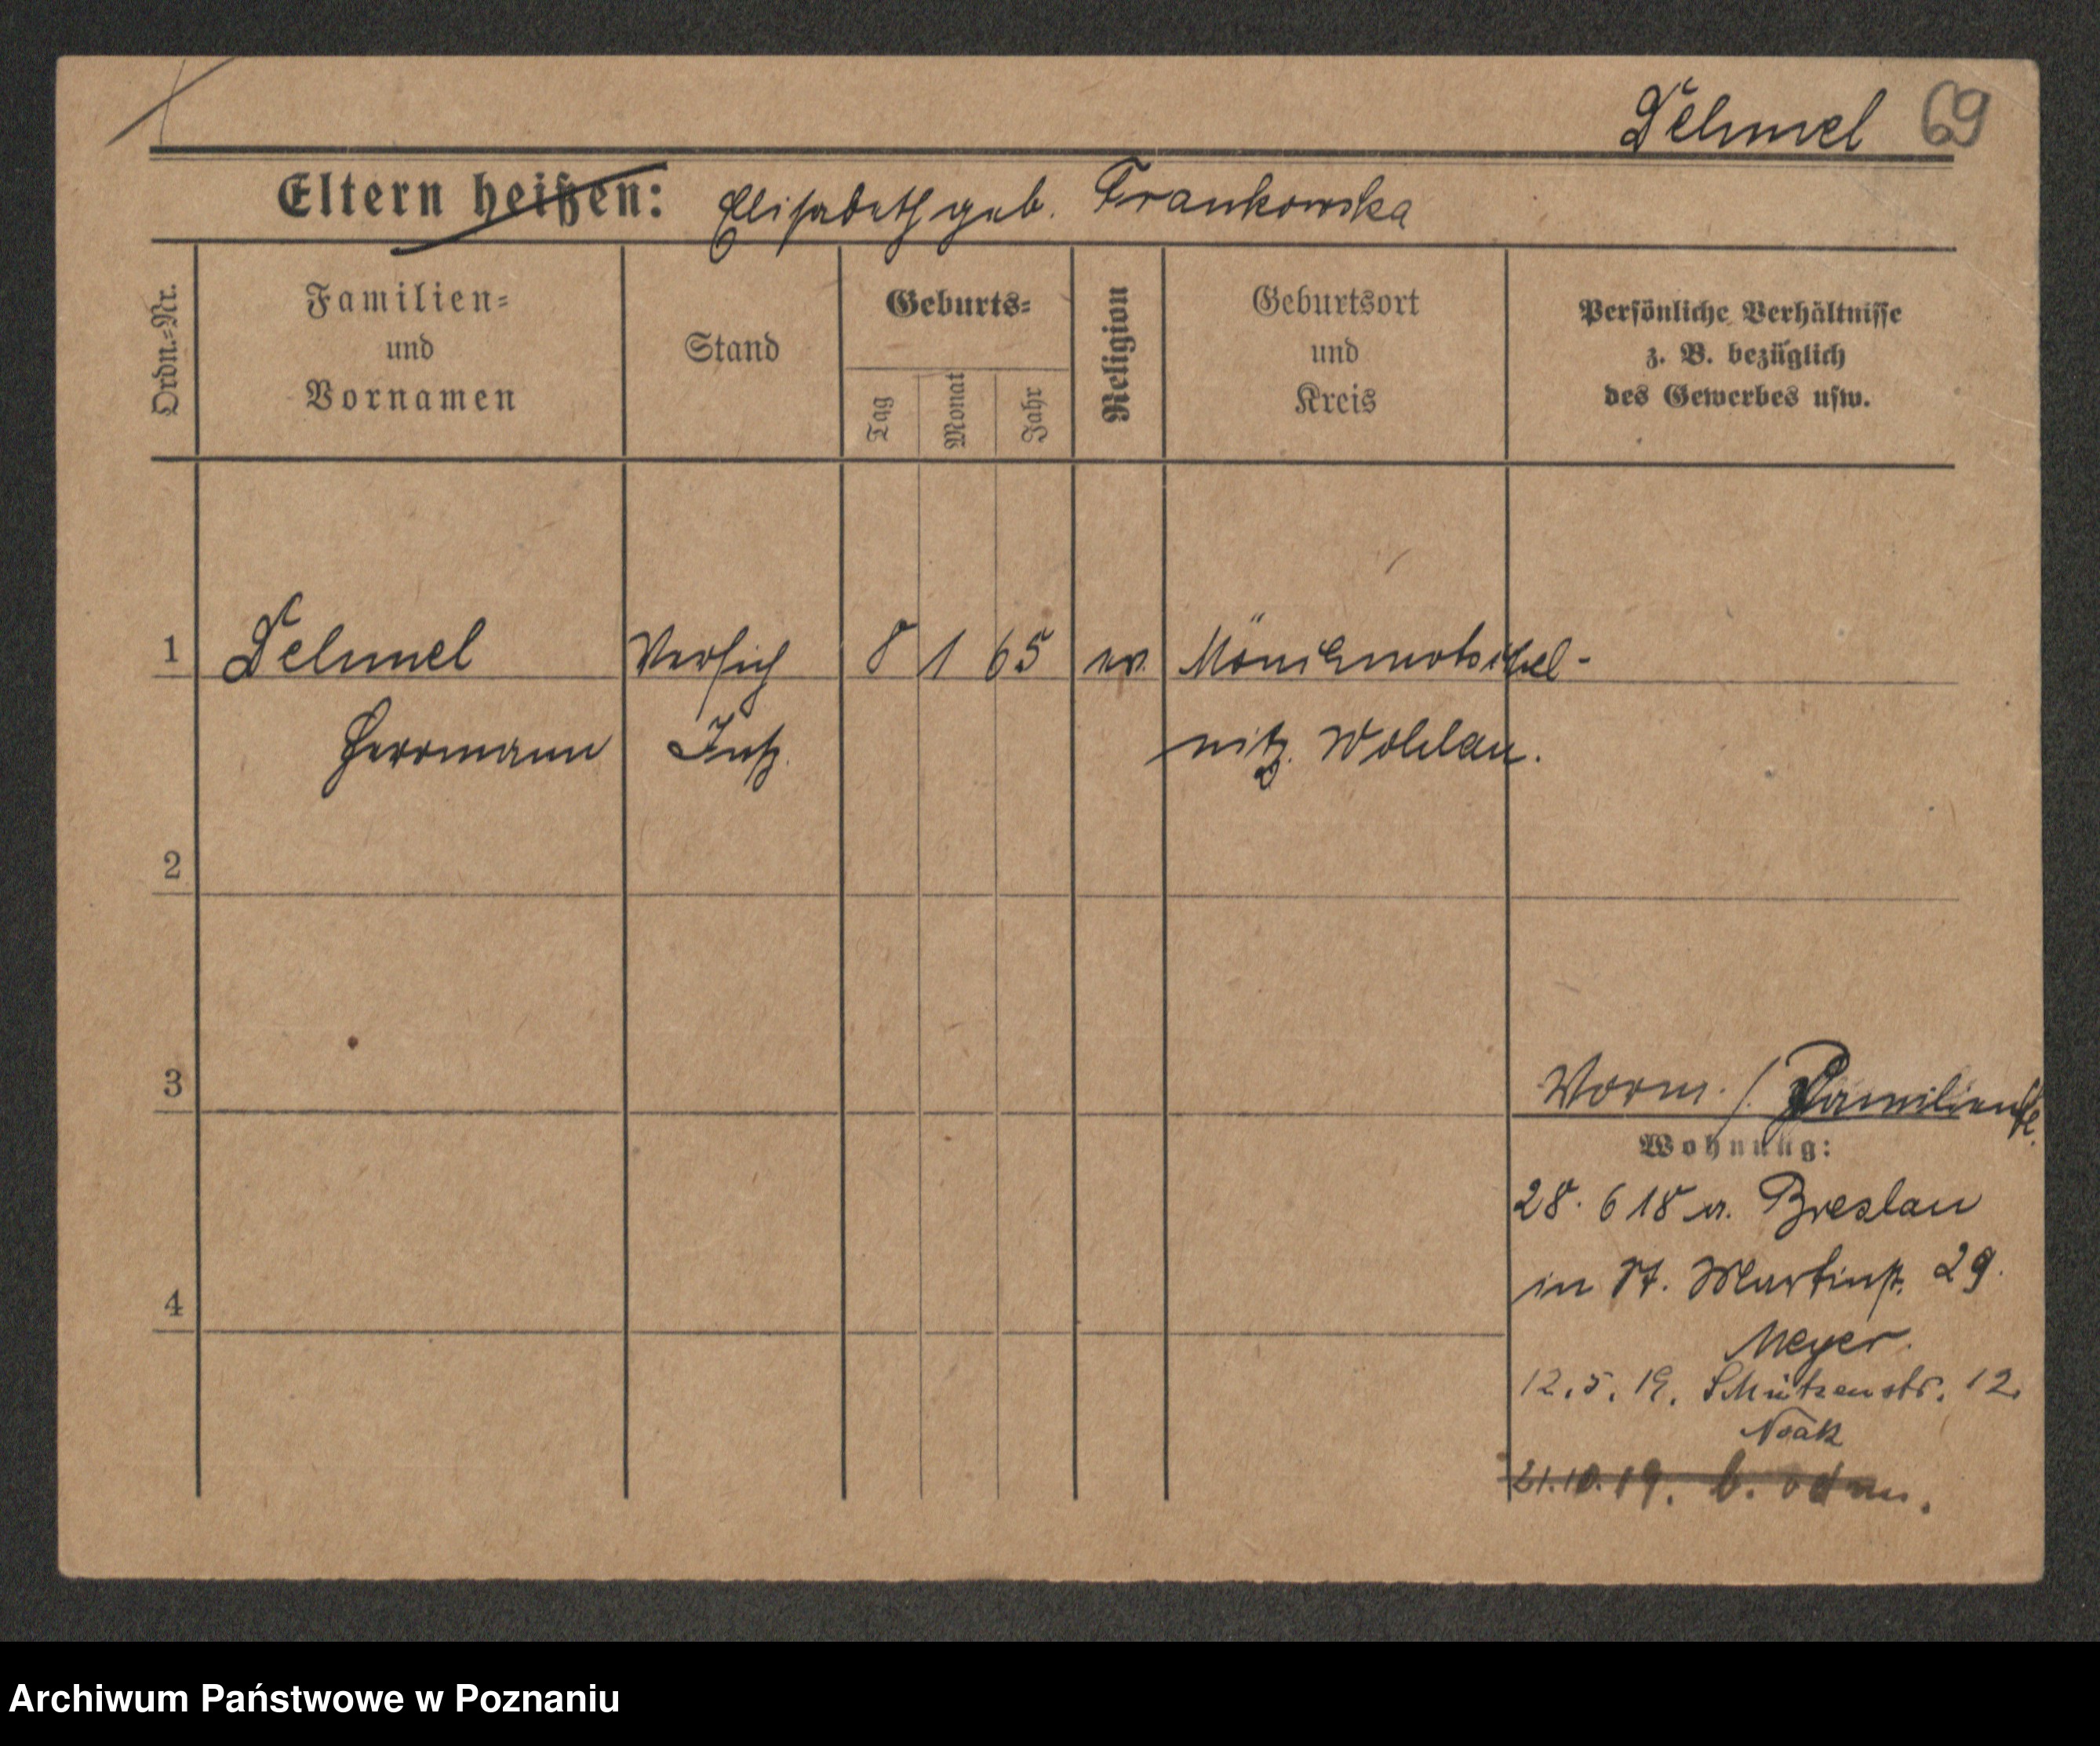 Dehmel 69
Eltern heißen: Elisabeth geb. Frankowska
Ordn.=Nr.
Familien=
und
Vornamen
Stand
Geburts=
Tag
Monat
Jahr
Religion
Geburtsort
und
Kreis
Persönliche Verhältnisse
z. B. bezüglich
des Gewerbes usw.
1 Dehmel Versich 8 1 65 ev. Mönchmotschel-
Herrmann Insp. nitz Wohlau.
2
3
Vorm. /. Familienk.
Wohnung:
28. 6 18 v. Breslau
in St. Martinst. 29.
Meyer.
4
12. 5. 19. Schützenstr. 12.
Noak
21.10.19.
Archiwum Państwowe w Poznaniu